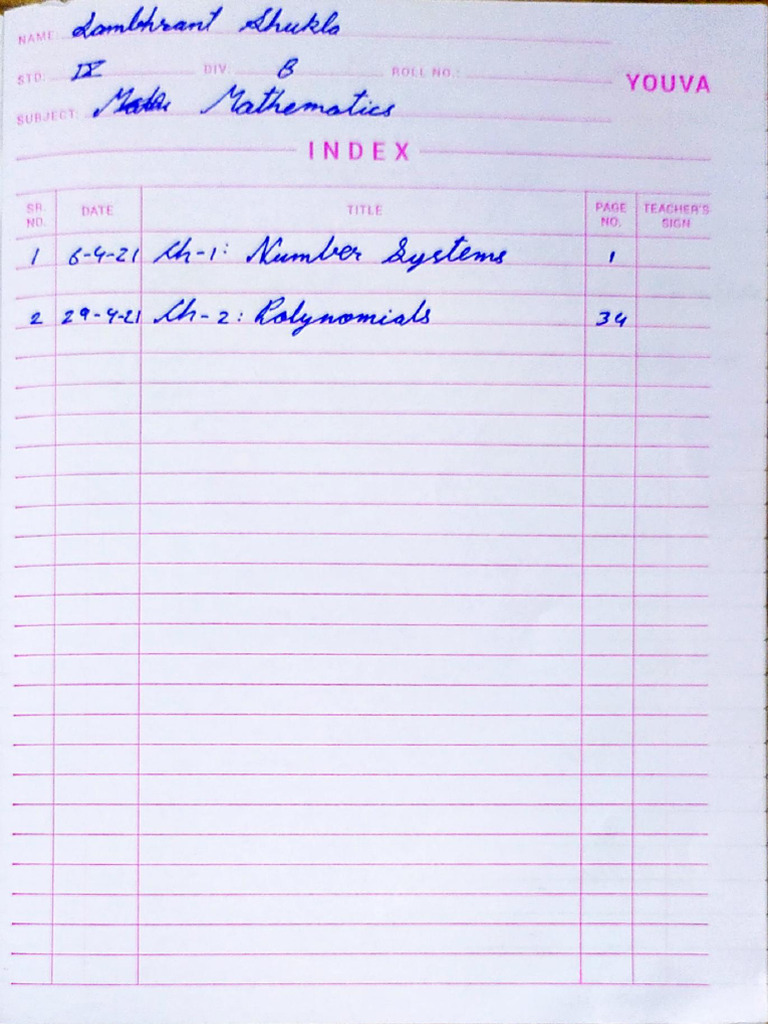 NAME: Sambhrant Shukla
STD: IX DIV. B ROLL NO.: YOUVA
SUBJECT: Mathematics
INDEX
SR. NO. DATE TITLE PAGE NO. TEACHER'S SIGN
1 6-4-21 Ch-1: Number Systems 1
2 29-4-21 Ch-2: Polynomials 34